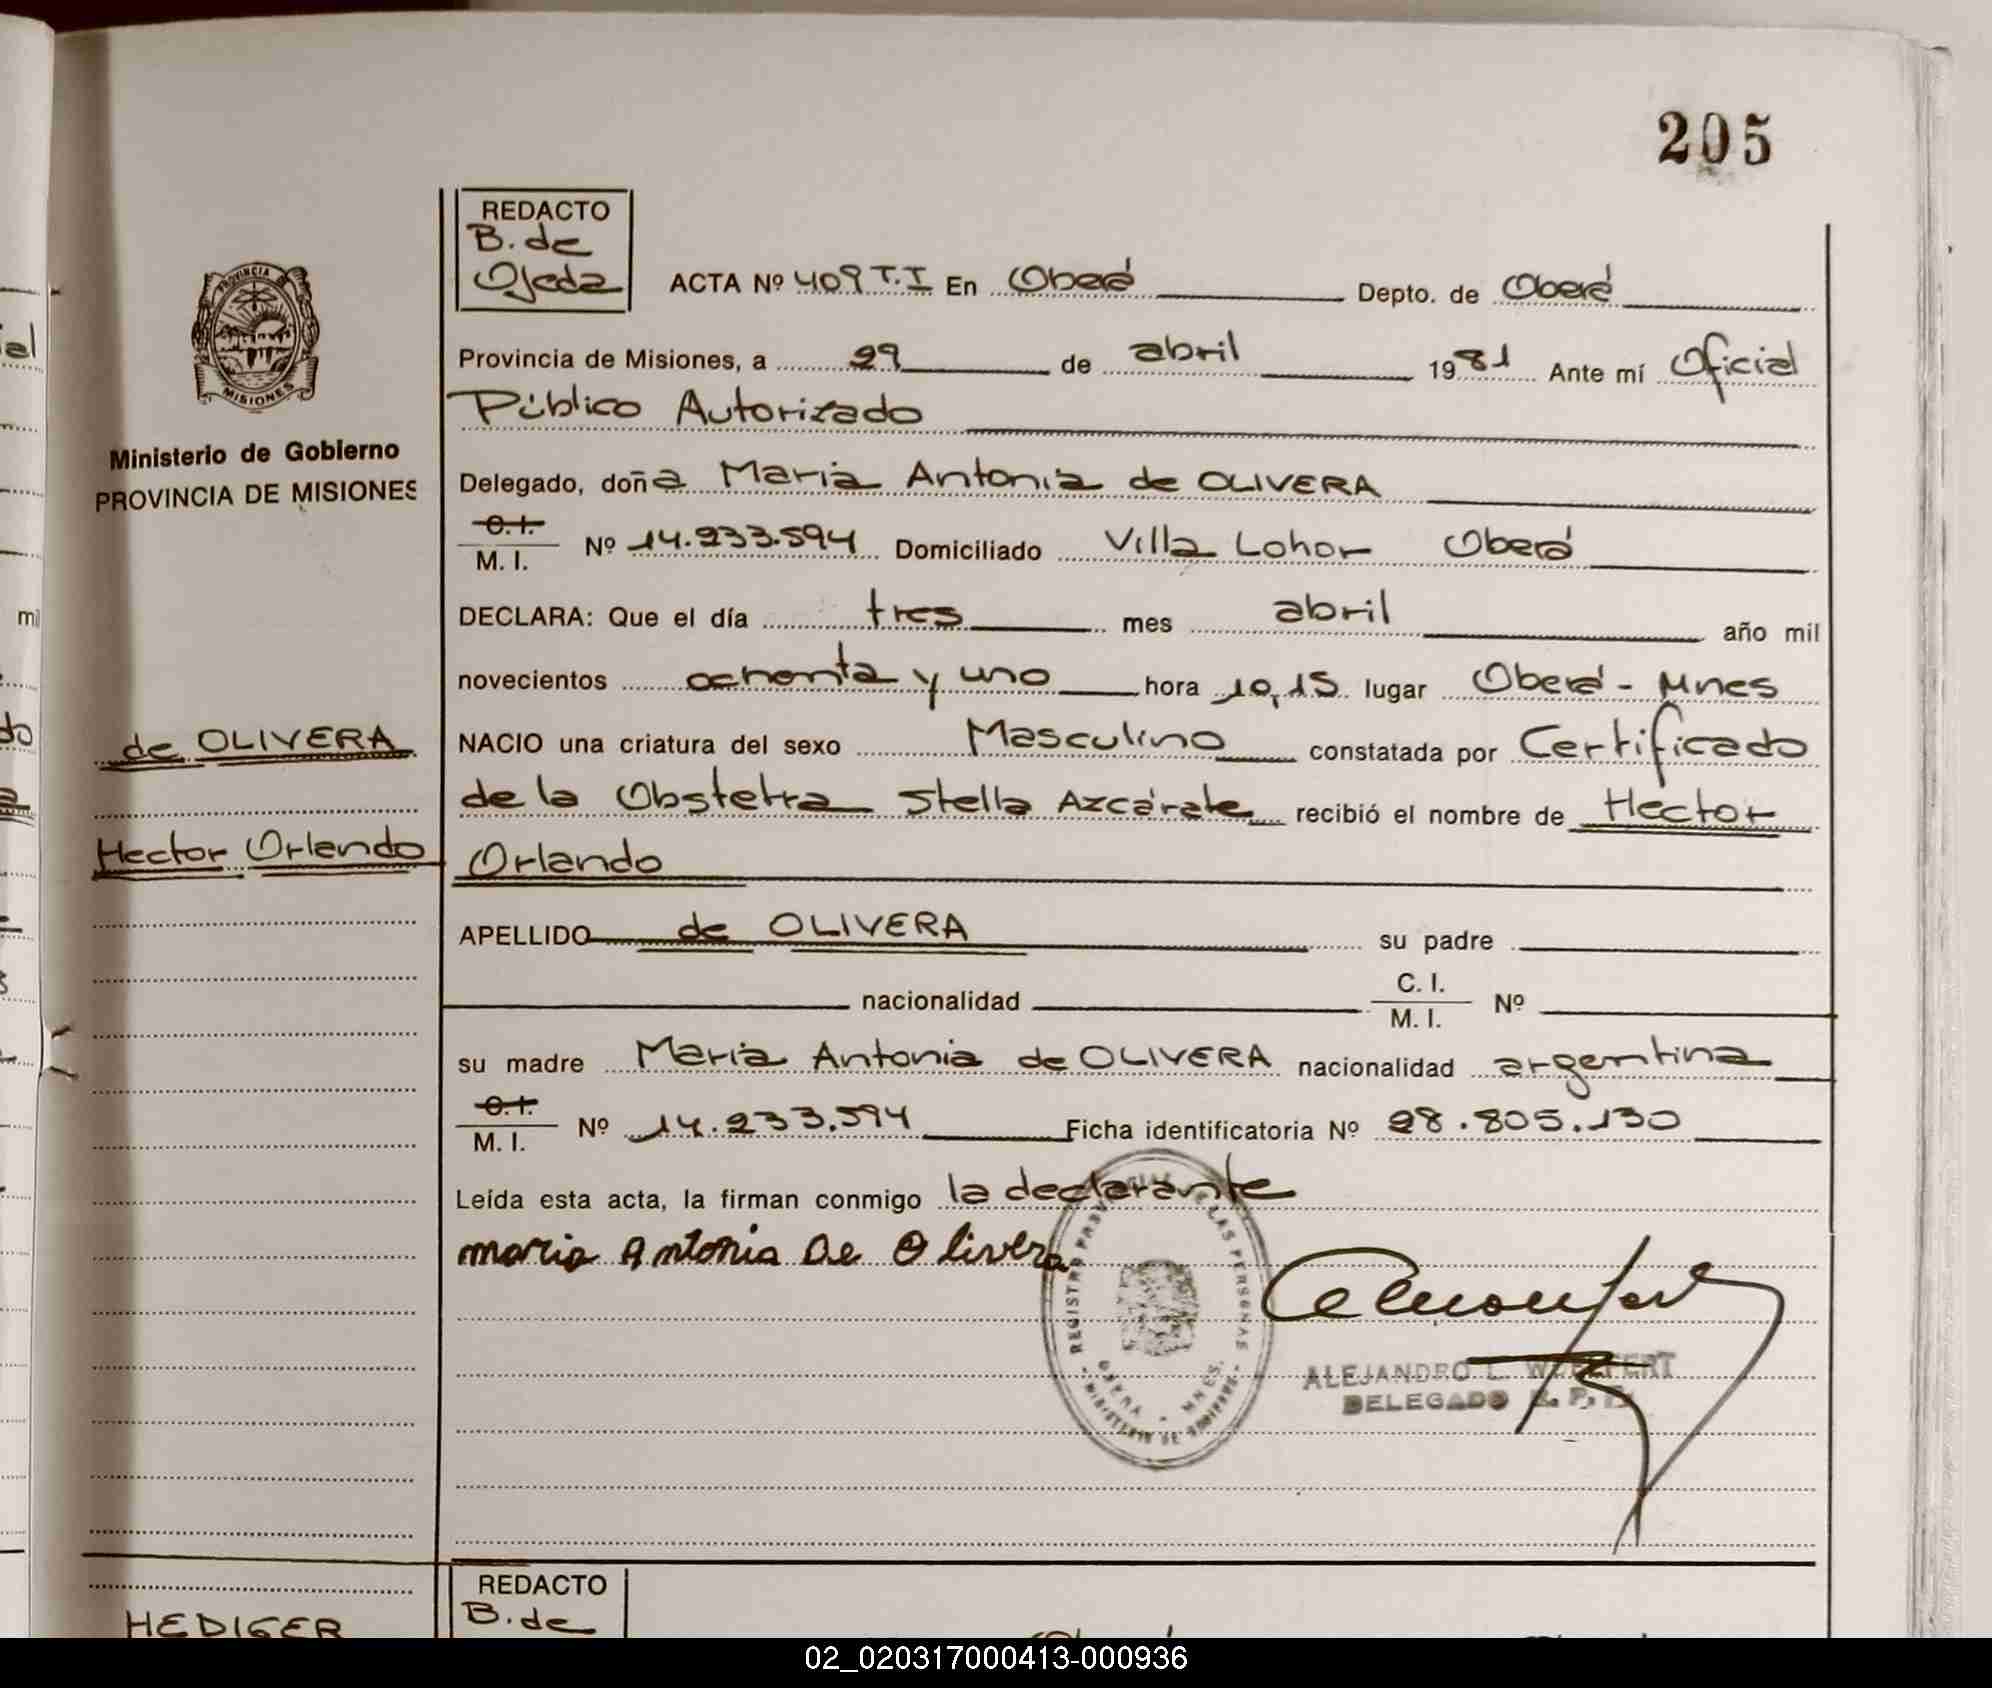 205
REDACTO
B. de
Ojeda
ACTA Nº 409 T.I En Oberá Depto. de Oberá
Provincia de Misiones, a 29 de abril 1981 Ante mí Oficial
Público Autorizado
PROVINCIA
MISIONES
Ministerio de Gobierno
PROVINCIA DE MISIONES
Delegado, doña Maria Antonia de OLIVERA
C.I.
M. I. Nº 14.233.594 Domiciliado Villa Lohor Oberá
DECLARA: Que el día tres mes abril año mil
novecientos ochenta y uno hora 10,15 lugar Oberá - Mnes
de OLIVERA
NACIO una criatura del sexo Masculino constatada por Certificado
de la Obstetra Stella Azcárate recibió el nombre de Hector
Hector Orlando
Orlando
APELLIDO de OLIVERA su padre
nacionalidad C. I.
M. I. Nº
su madre Maria Antonia de OLIVERA nacionalidad argentina
C.I.
M. I. Nº 14.233.594 Ficha identificatoria Nº 28.805.130
Leída esta acta, la firman conmigo la declarante
maria Antonia De Olivera
ALEJANDRO L. WOLFERT
DELEGADO R. P.
HEDIGER
REDACTO
B. de
02_020317000413-000936